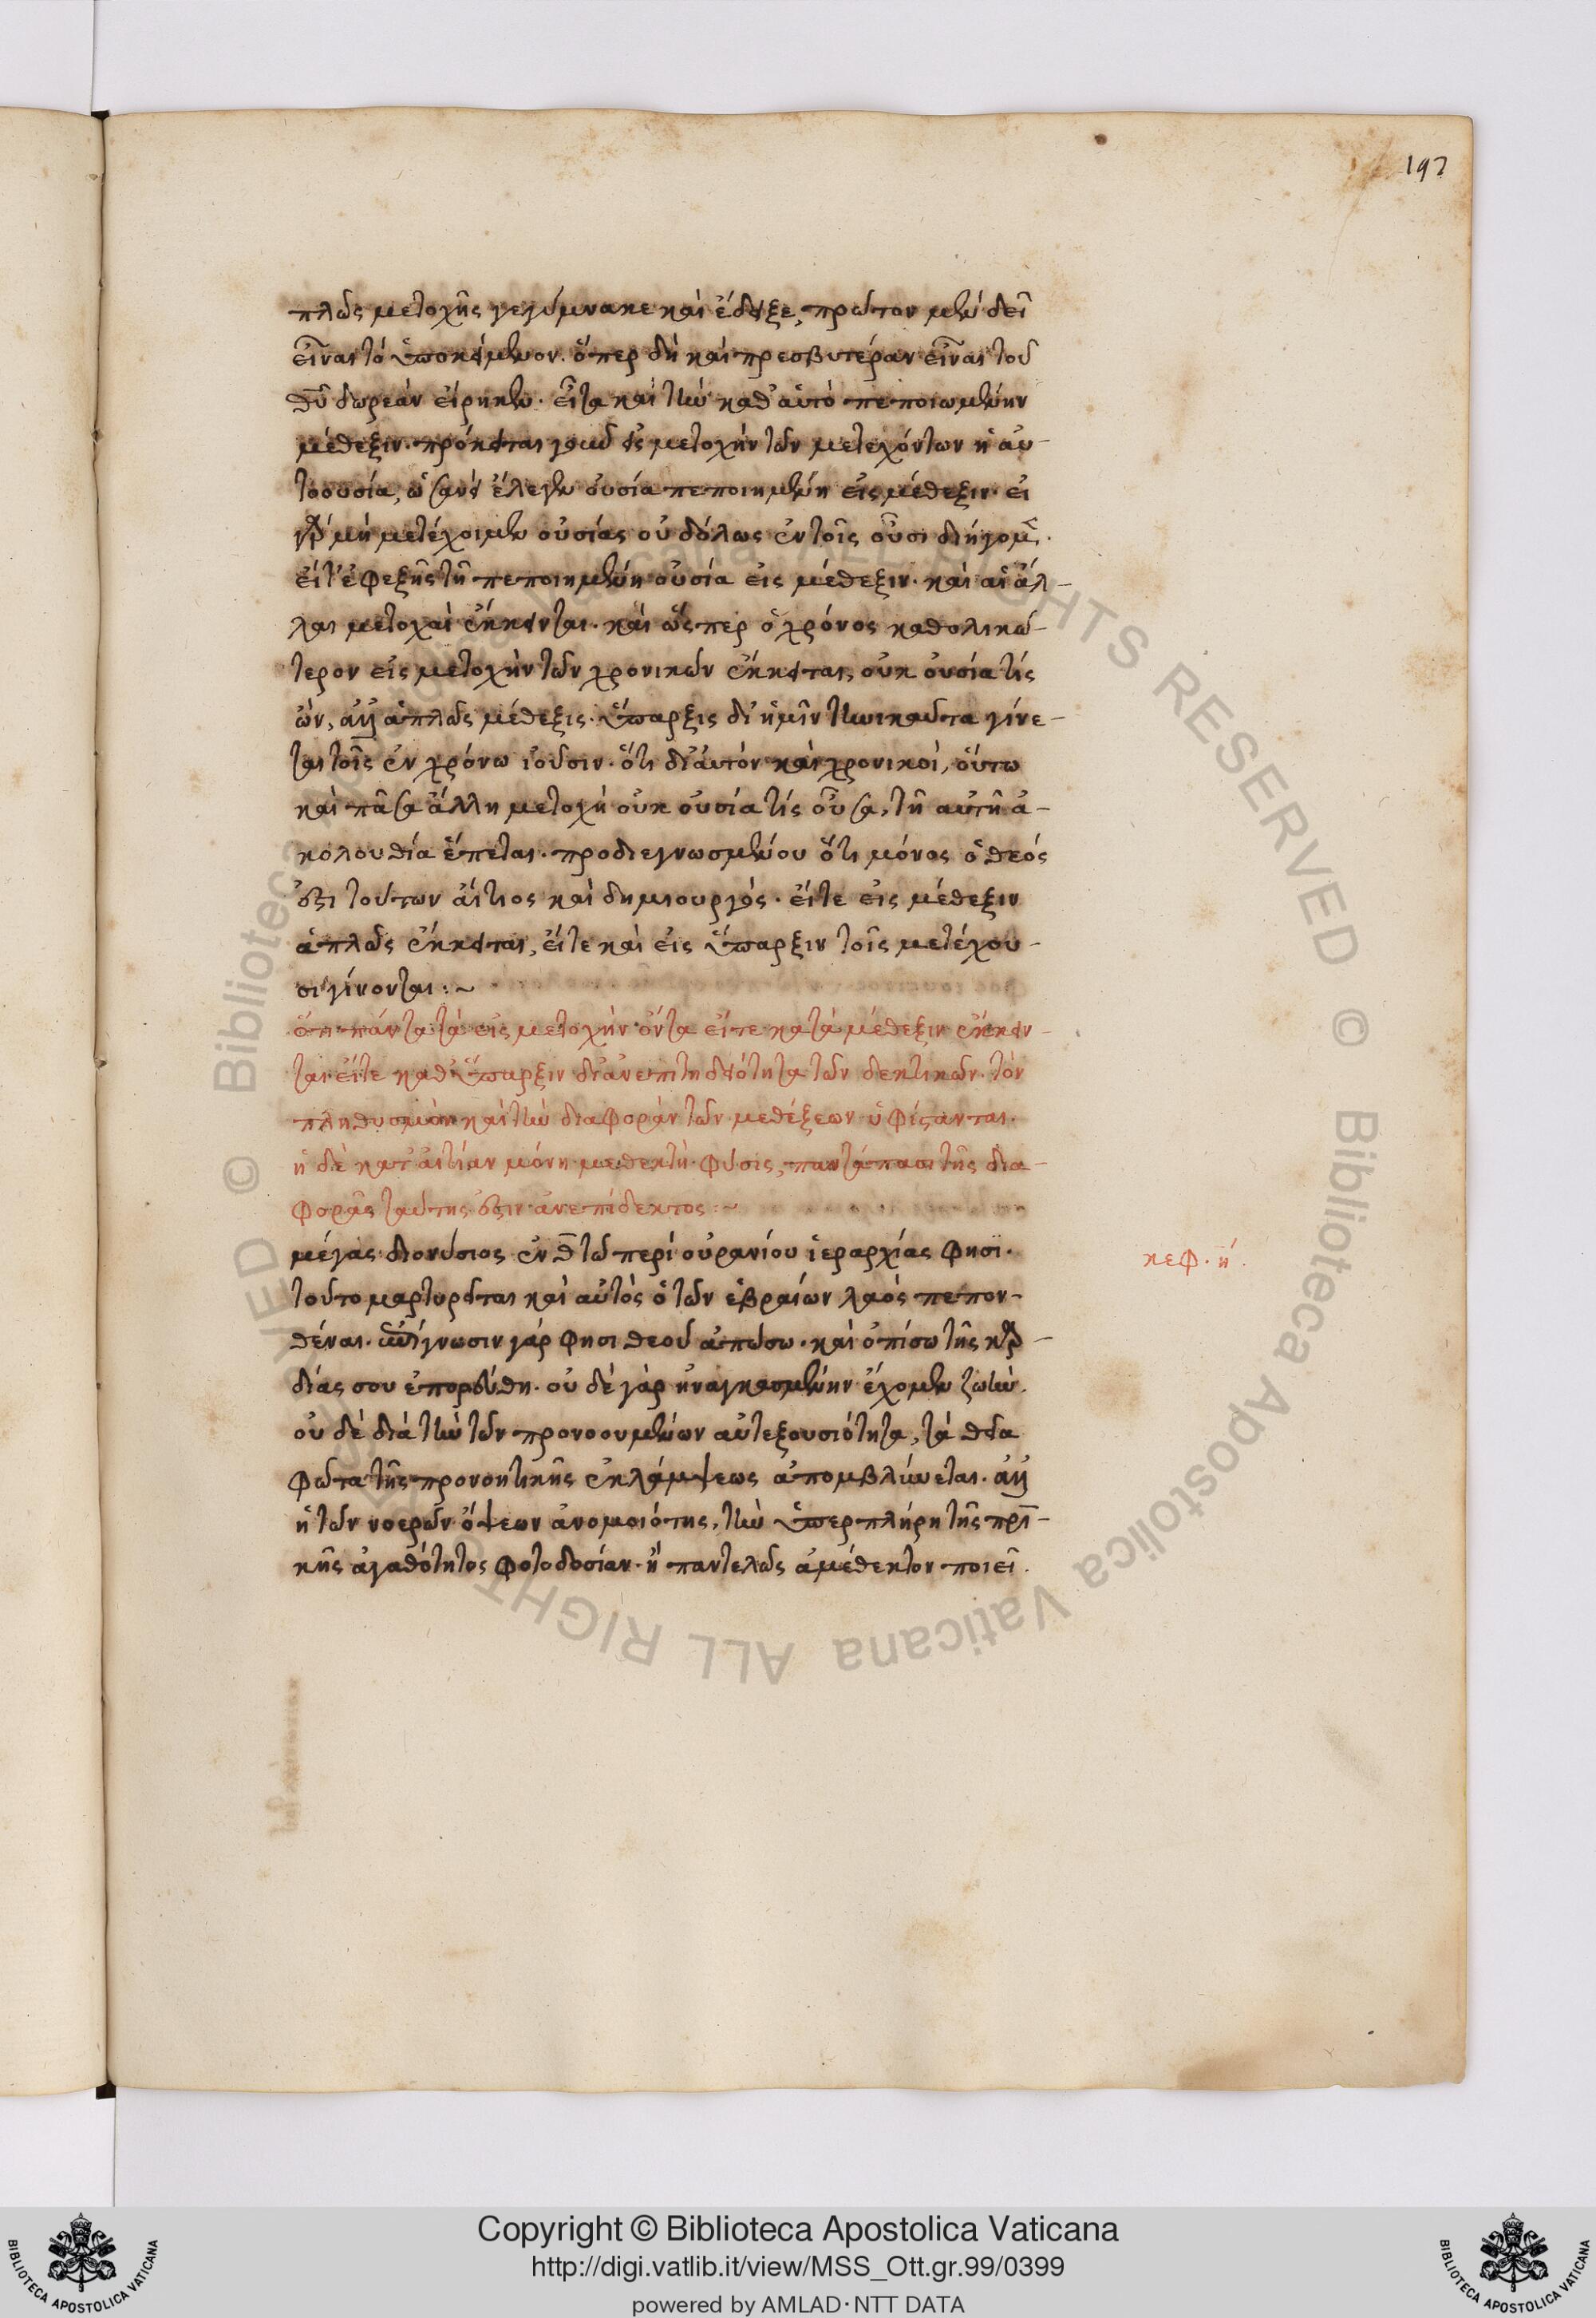 197
πλῶς μετοχῆς γεγύμνακε καὶ ἔδειξε, πρῶτον μὲν δεῖ
εἶναι τὸ ὑποκείμενον. ὅπερ δὴ καὶ πρεσβυτέραν εἶναι τοῦ
θῦ δωρεὰν εἴρηκεν. εἶτα καὶ τὴν καθ' αὐτὸ πεποιωμένην
μέθεξιν. πρόκειται γοῦν εἰς μετοχὴν τῶν μετεχόντων ἡ αὐ-
τοουσία, ὡσανεὶ ἔλεγεν οὐσία πεποιημένη εἰς μέθεξιν. εἰ
γὰρ μὴ μετέχοιμεν οὐσίας οὐδόλως ἐν τοῖς οὖσι διήγομεν.
εἶτ' ἐφεξῆς τῇ πεποιημένη οὐσία εἰς μέθεξιν. καὶ αἱ ἄλ-
λαι μετοχαὶ ἔκκεινται. καὶ ὥσπερ ὁ χρόνος καθολικώ-
τερον εἰς μετοχὴν τῶν χρονικῶν ἔκκειται, οὐκ οὐσία τίς
ὢν, ἀλλ' ἁπλῶς μέθεξις. ὕπαρξις δ' ἡμῖν τηνικαῦτα γίνε-
ται τοῖς ἐν χρόνω ἰοῦσιν. ὅτι δι' αὐτὸν καὶ χρονικοὶ, οὕτω
καὶ πᾶσα ἄλλη μετοχὴ οὐκ οὐσία τίς οὖσα, τῇ αὐτῇ ἀ-
κολουθία ἕπεται. προδιεγνωσμένου ὅτι μόνος ὁ θεός
ἐστι τούτων αἴτιος καὶ δημιουργός. εἴτε εἰς μέθεξιν
ἁπλῶς ἔκκειται, εἴτε καὶ εἰς ὕπαρξιν τοῖς μετέχου-
σι γίνονται :~
ὅτι πάντα τὰ εἰς μετοχὴν ὄντα εἴτε κατὰ μέθεξιν ἔκκειν-
ται εἴτε καθ' ὕπαρξιν δι' ἀνεπιτηδειότητα τῶν δεκτικῶν. τὸν
πληθυσμὸν καὶ τὴν διαφορὰν τῶν μεθέξεων ὑφίστανται.
ἡ δὲ κατ' αἰτίαν μόνη μεθεκτὴ φύσις, παντάπασι τῆς δια-
φορᾶς ταύτης ἐστὶν ἀνεπίδεκτος :~
μέγας διονύσιος ἐν θ τῶ περὶ οὐρανίου ἱεραρχίας φησὶ.
κεφ. η.
τοῦτο μαρτυρεῖται καὶ αὐτὸς ὁ τῶν ἑβραίων λαὸς πεπον-
θέναι. ἐπίγνωσιν γάρ φησι θεοῦ ἀπώσω. καὶ ὀπίσω τῆς καρ-
δίας σου ἐπορεύθη. οὐ δὲ γὰρ ἠναγκασμένην ἔχομεν ζωὴν.
οὐ δὲ διὰ τὴν τῶν προνοουμένων αὐτεξουσιότητα, τὰ θεῖα
φῶτα τῆς προνοητικῆς ἐκλάμψεως ἀπομβλύνεται. ἀλλ'
ἡ τῶν νοερῶν ὄψεων ἀνομοιότης, τὴν ὑπερπλήρη τῆς πρι-
κῆς ἀγαθότητος φοτοδοσίαν. ἢ παντελῶς ἀμέθεκτον ποιεῖ.
Copyright © Biblioteca Apostolica Vaticana
http://digi.vatlib.it/view/MSS_Ott.gr.99/0399
powered by AMLAD·NTT DATA
BIBLIOTECA APOSTOLICA VATICANA
BIBLIOTECA APOSTOLICA VATICANA
© Biblioteca Apostolica Vaticana ALL RIGHTS RESERVED © Biblioteca Apostolica Vaticana ALL RIGHTS RESERVED